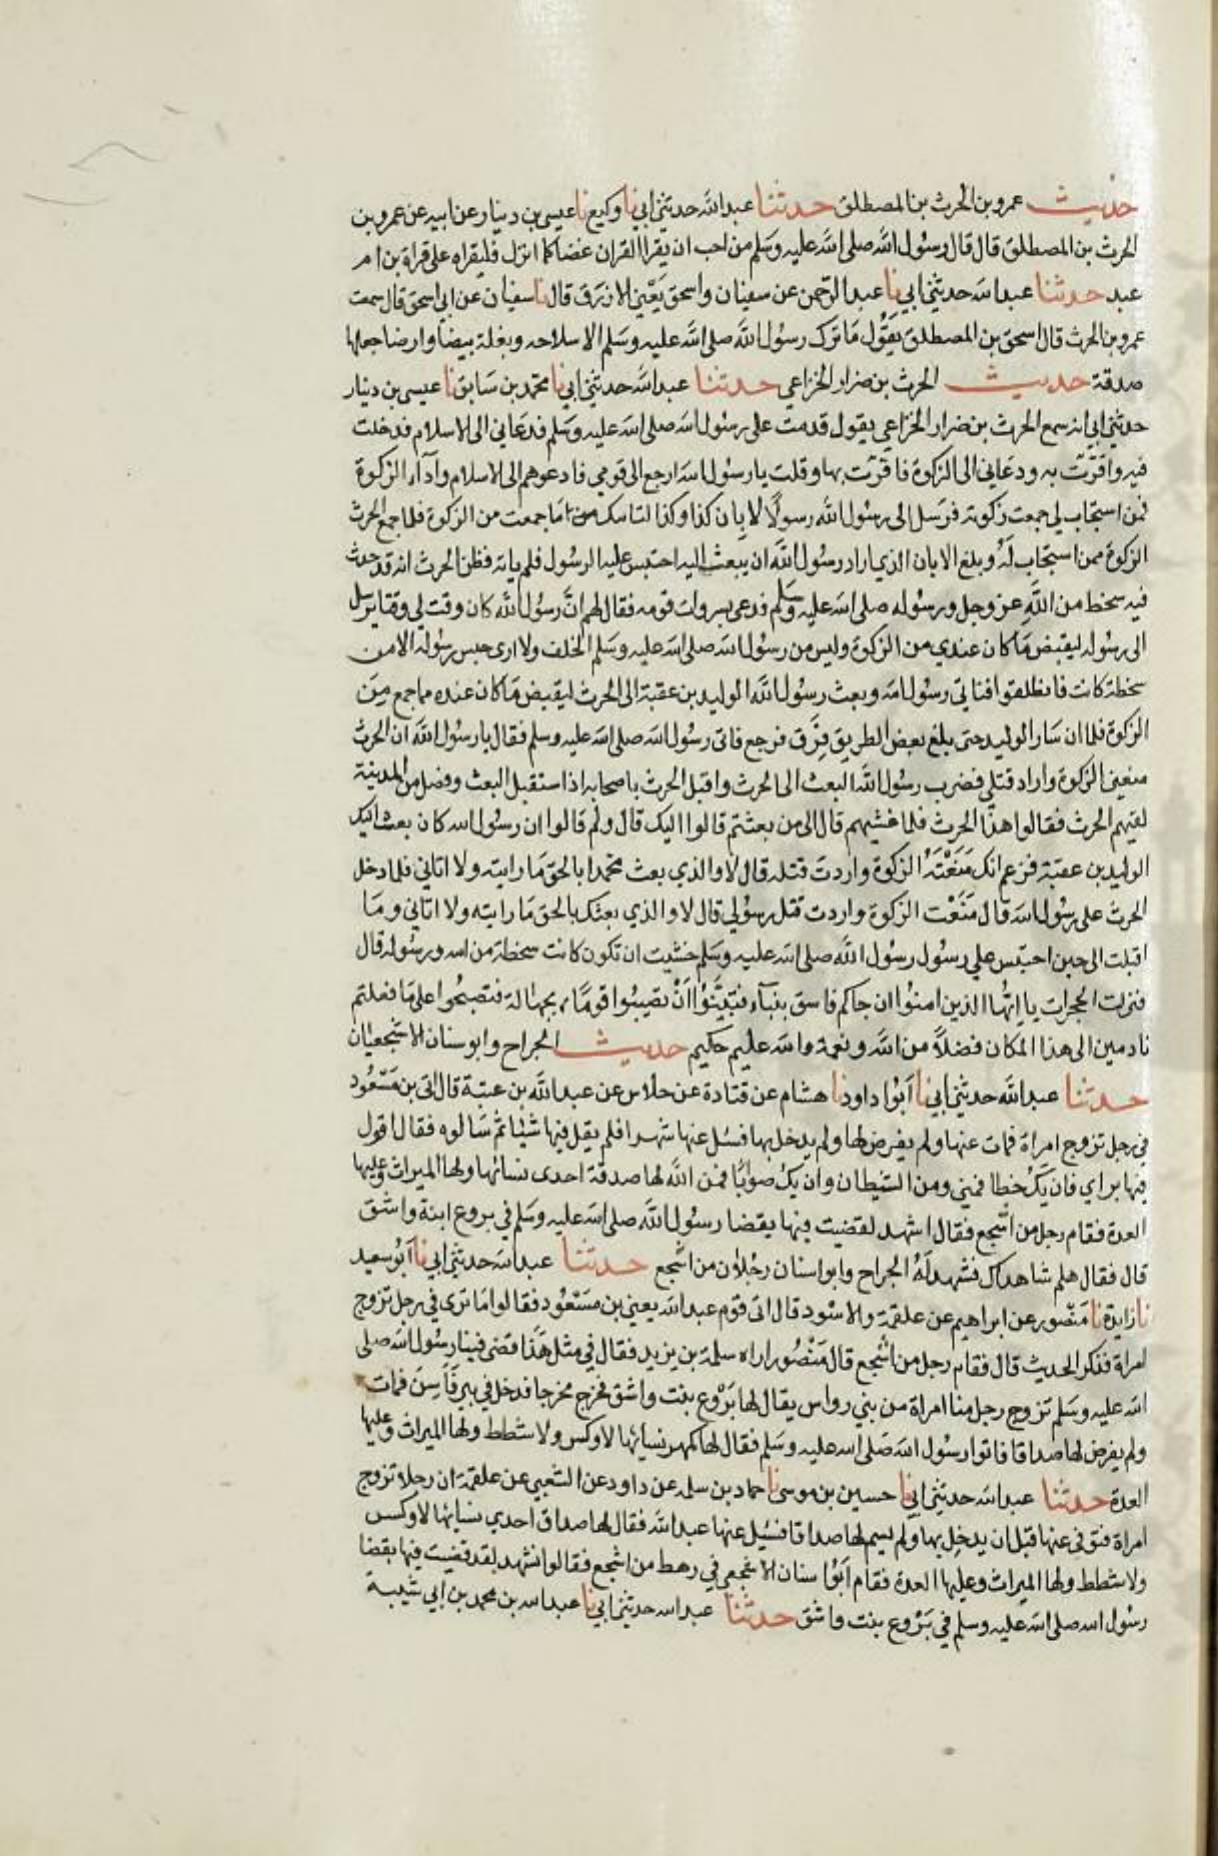 حديث عمرو بن الحرث بن المصطلق حدثنا عبد الله حدثني ابي نا وكيع نا عيسى بن دينار عن ابيه عن عمرو بن
الحرث بن المصطلق قال قال رسول الله صلى الله عليه وسلم من احب ان يقرا القران غضا كما انزل فليقراه على قراة بن ام
عبد حدثنا عبد الله حدثني ابي نا عبد الرحمن عن سفيان واسحق يعني الازرق قال نا سفيان عن ابي اسحق قال سمعت
عمرو بن الحرث قال اسحق بن المصطلق يقول ما ترك رسول الله صلى الله عليه وسلم الا سلاحه وبغلة بيضا وارضا جعلها
صدقة حديث الحرث بن ضرار الخزاعي حدثنا عبد الله حدثني ابي نا محمد بن سابق نا عيسى بن دينار
حدثني ابي انه سمع الحرث بن ضرار الخزاعي يقول قدمت على رسول الله صلى الله عليه وسلم فدعاني الى الاسلام فدخلت
فيه واقررت به ودعاني الى الزكوة فاقررت بها وقلت يا رسول الله ارجع الى قومي فادعوهم الى الاسلام وادآء الزكوة
فمن استجاب لي جمعت زكوته فرسل الى رسول الله رسولا لابان كذا وكذا لتاسك من ما جمعت من الزكوة فلما جمع الحرث
الزكوة ممن استجاب له وبلغ الابان الذي اراد رسول الله ان يبعث اليه احتبس عليه الرسول فلم ياته فظن الحرث انه قد حدث
فيه سخط من الله عز وجل ورسوله صلى الله عليه وسلم فدعى بسروات قومه فقال لهم ان رسول الله كان وقت لي وقتا يرسل
الى رسوله ليقبض ما كان عندي من الزكوة وليس من رسول الله صلى الله عليه وسلم الخلف ولا ارى حبس رسوله الا من
سخطة كانت فانطلقوا فناتي رسول الله وبعث رسول الله الوليد بن عقبة الى الحرث ليقبض ما كان عنده مما جمع من
الزكوة فلما ان سار الوليد حتى بلغ بعض الطريق فرق فرجع فاتى رسول الله صلى الله عليه وسلم فقال يا رسول الله ان الحرث
منعني الزكوة واراد قتلي فضرب رسول الله البعث الى الحرث واقبل الحرث باصحابه اذا استقبل البعث وفصل من المدينة
لقيهم الحرث فقالوا هذا الحرث فلما غشيهم قال الى من بعثتم قالوا اليك قال ولم قالوا ان رسول الله كان بعث اليك
الوليد بن عقبة فزعم انك منعته الزكوة واردت قتله قال لا والذي بعث محمدا بالحق ما رايته ولا اتاني فلما دخل
الحرث على رسول الله قال منعت الزكوة واردت قتل رسولي قال لا والذي بعثك بالحق ما رايته ولا اتاني وما
اقبلت الى حين احتبس علي رسول رسول الله صلى الله عليه وسلم خشيت ان تكون كانت سخطة من الله ورسوله قال
فنزلت الحجرات يا ايها الذين امنوا ان جاكم فاسق بنبآء فتبينوا ان تصيبوا قوما بجهالة فتصبحوا على ما فعلتم
نادمين الى هذا المكان فضلا من الله ونعمة والله عليم حكيم حديث الجراح وابو سنان الاشجعيان
حدثنا عبد الله حدثني ابي نا ابوا داود نا هشام عن قتادة عن خلاس عن عبد الله بن عتبة قال اتى بن مسعود
في رجل تزوج امراة فمات عنها ولم يفرض لها ولم يدخل بها فسئل عنها شهرا فلم يقل فيها شيئا ثم سالوه فقال اقول
فيها براي فان يك خطا فمني ومن الشيطان وان يك صوابا فمن الله لها صدقة احدى نسائها ولها الميراث وعليها
العدة فقام رجل من اشجع فقال اشهد لقضيت فيها بقضا رسول الله صلى الله عليه وسلم في بروع ابنة واشق
قال فقال هلم شاهداك فشهد له الجراح وابوا سنان رجلان من اشجع حدثنا عبد الله حدثني ابي نا ابو سعيد
نا زايدة نا منصور عن ابراهيم عن علقمة والاسود قال اتى قوم عبد الله يعني بن مسعود فقالوا ما ترى في رجل تزوج
امراة فذكر الحديث قال فقام رجل من اشجع قال منصور اراه سلمة بن يزيد فقال في مثل هذا قضى فينا رسول الله صلى
الله عليه وسلم تزوج رجل منا امراة من بني رواس يقال لها بروع بنت واشق فخرج مخرجا فدخل في بير فاسن فمات
ولم يفرض لها صداقا فاتوا رسول الله صلى الله عليه وسلم فقال لها كمهر نسائها لا وكس ولا شطط ولها الميراث وعليها
العدة حدثنا عبد الله حدثني ابي نا حسين بن موسى نا حماد بن سلمه عن داود عن الشعبي عن علقمة ان رجلا تزوج
امراة فتوفى عنها قبل ان يدخل بها ولم يسم لها صداقا فسئل عنها عبد الله فقال لها صداق احدى نسائها لا وكس
ولا شطط ولها الميراث وعليها العدة فقام ابوا سنان الاشجعي في رهط من اشجع فقالوا نشهد لقد قضيت فيها بقضا
رسول الله صلى الله عليه وسلم في بروع بنت واشق حدثنا عبد الله حدثني ابي نا عبد الله بن محمد بن ابي شيبة